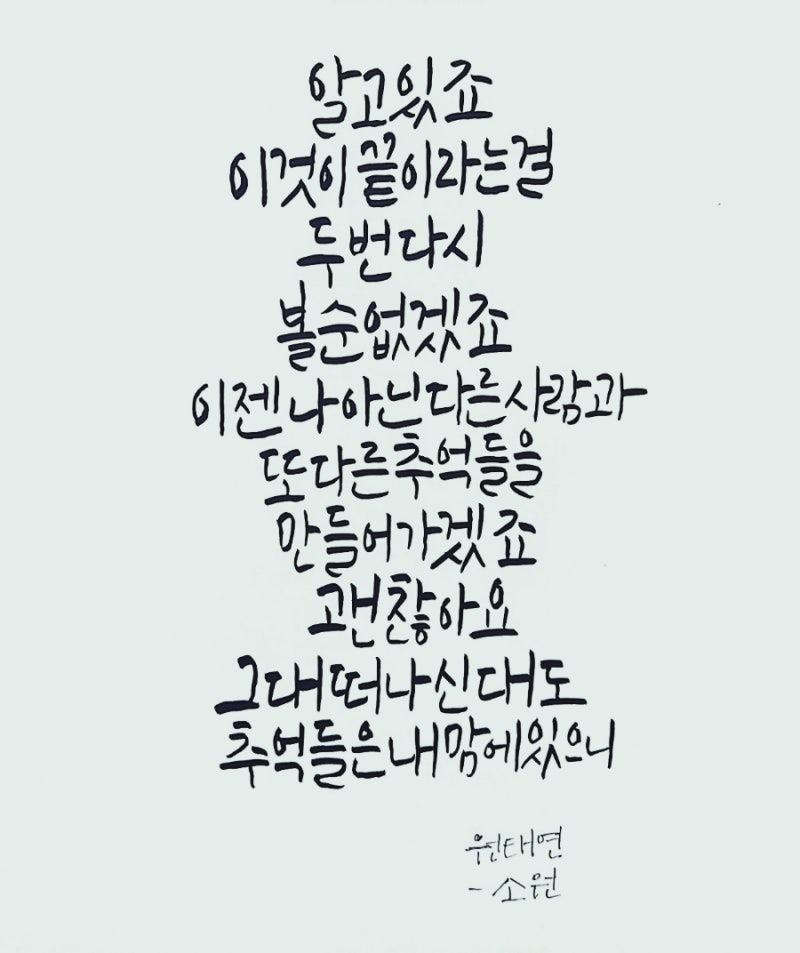 알고있죠
이것이 끝이라는걸
두번다시
볼순없겠죠
이젠나아닌다른사람과
또다른추억들을
만들어가겠죠
괜찮아요
그대떠나신대도
추억들은내맘에있으니
원태연
- 소원